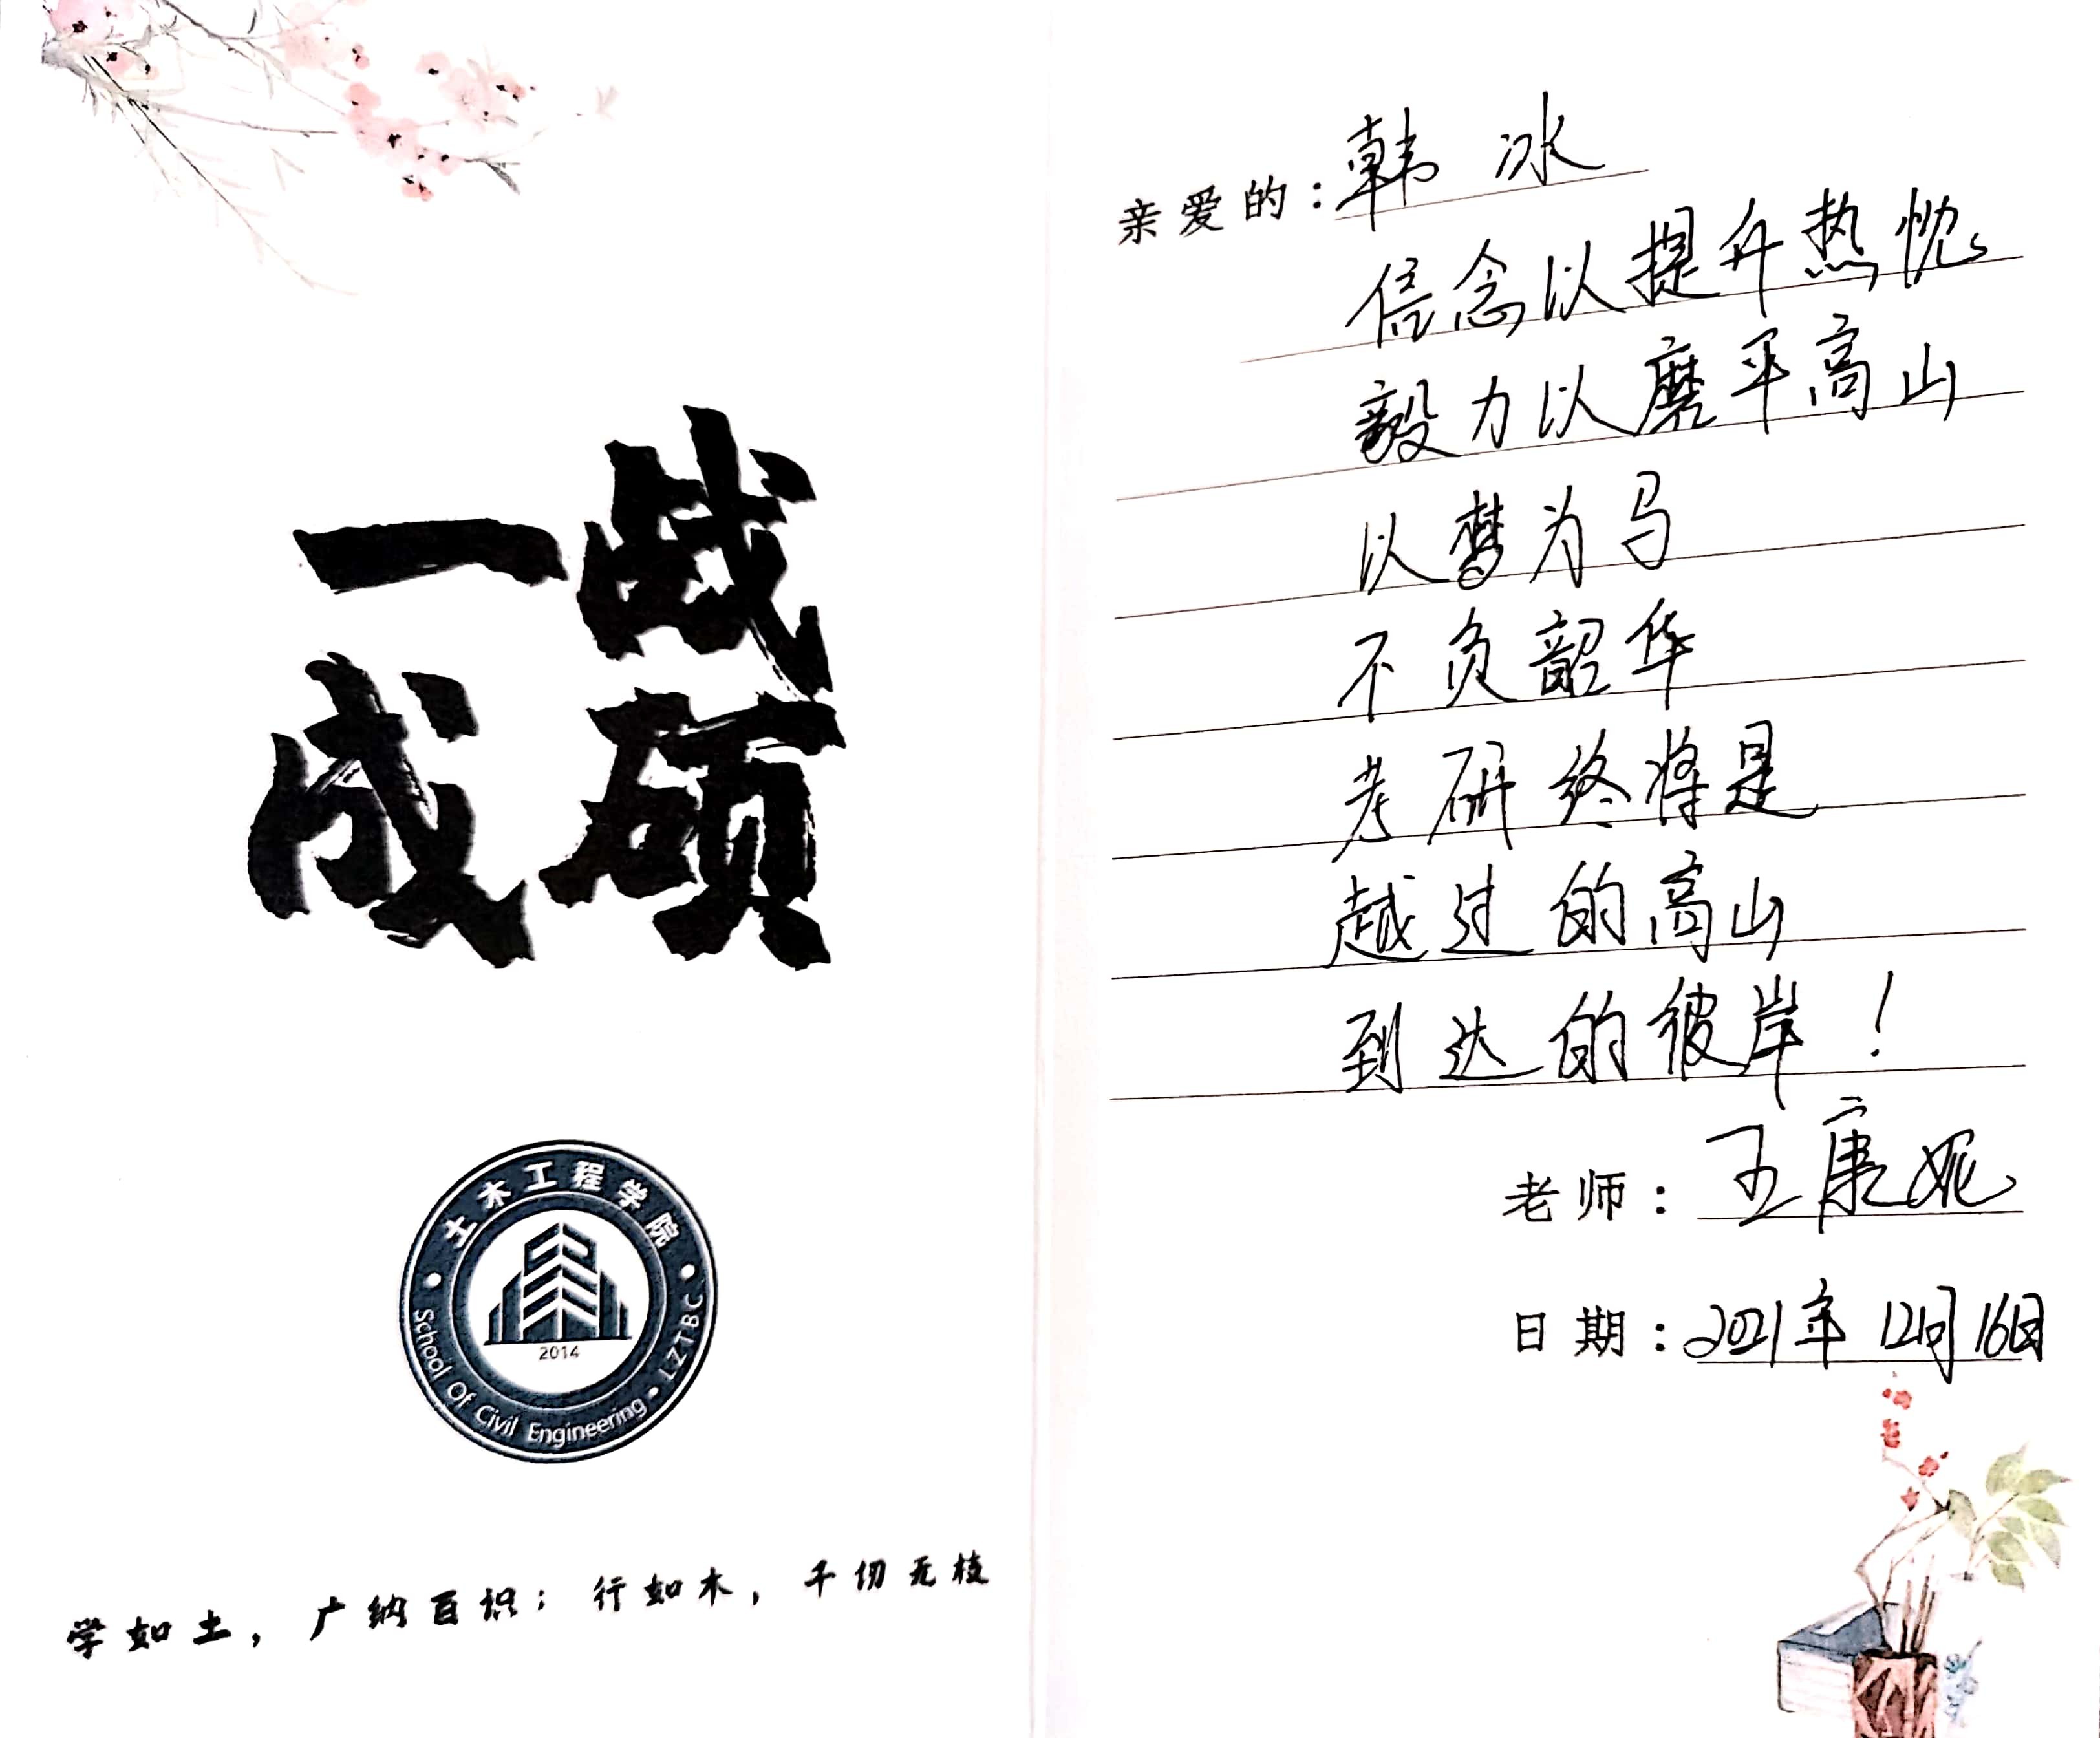 一战
成硕
土木工程学院
School Of Civil Engineering · LZTBC
2014
学如土，广纳百识；行如木，千仞无枝
亲爱的：韩冰
信念以提升热忱
毅力以磨平高山
以梦为马
不负韶华
考研终将是
越过的高山
到达的彼岸！
老师：王康妮
日期：2021年12月16日